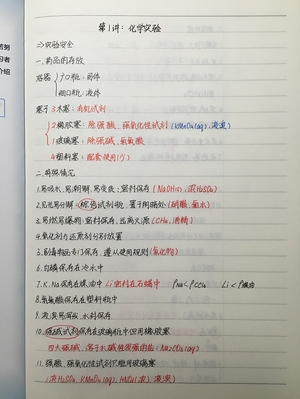 第1讲：化学实验
⇒实验安全
一.药品的存放
容器 广口瓶：固体
细口瓶：液体
塞子 木塞：有机试剂
2橡胶塞：除强酸、强氧化性试剂(KMnO4(aq)、液溴)
1玻璃塞：除强碱、氢氟酸
4塑料塞：配套使用
二.特殊情况
1.易吸水,易潮解,易变质：密封保存(NaOH(s),浓H2SO4)
2.见光易分解→棕色试剂瓶,置于阴暗处(硝酸、氯水)
3.易燃易爆物：密封保存,远离火源(CH4,酒精)
4.氧化剂与还原剂分别放置
5.剧毒物品专门保存,遵从使用规则(氰化物)
6.白磷保存在冷水中
7.K、Na保存在煤油中 Li密封在石蜡中
8.氢氟酸保存在塑料瓶中
9.液溴易挥发,水封保存
10.强碱试剂保存在玻璃瓶中但用橡胶塞
四大强碱,溶于水碱性很强的盐(Na2CO3(aq))
11.强酸、强氧化性试剂只能用玻璃塞
(浓H2SO4、KMnO4(aq)、HNO3(浓)、液溴)